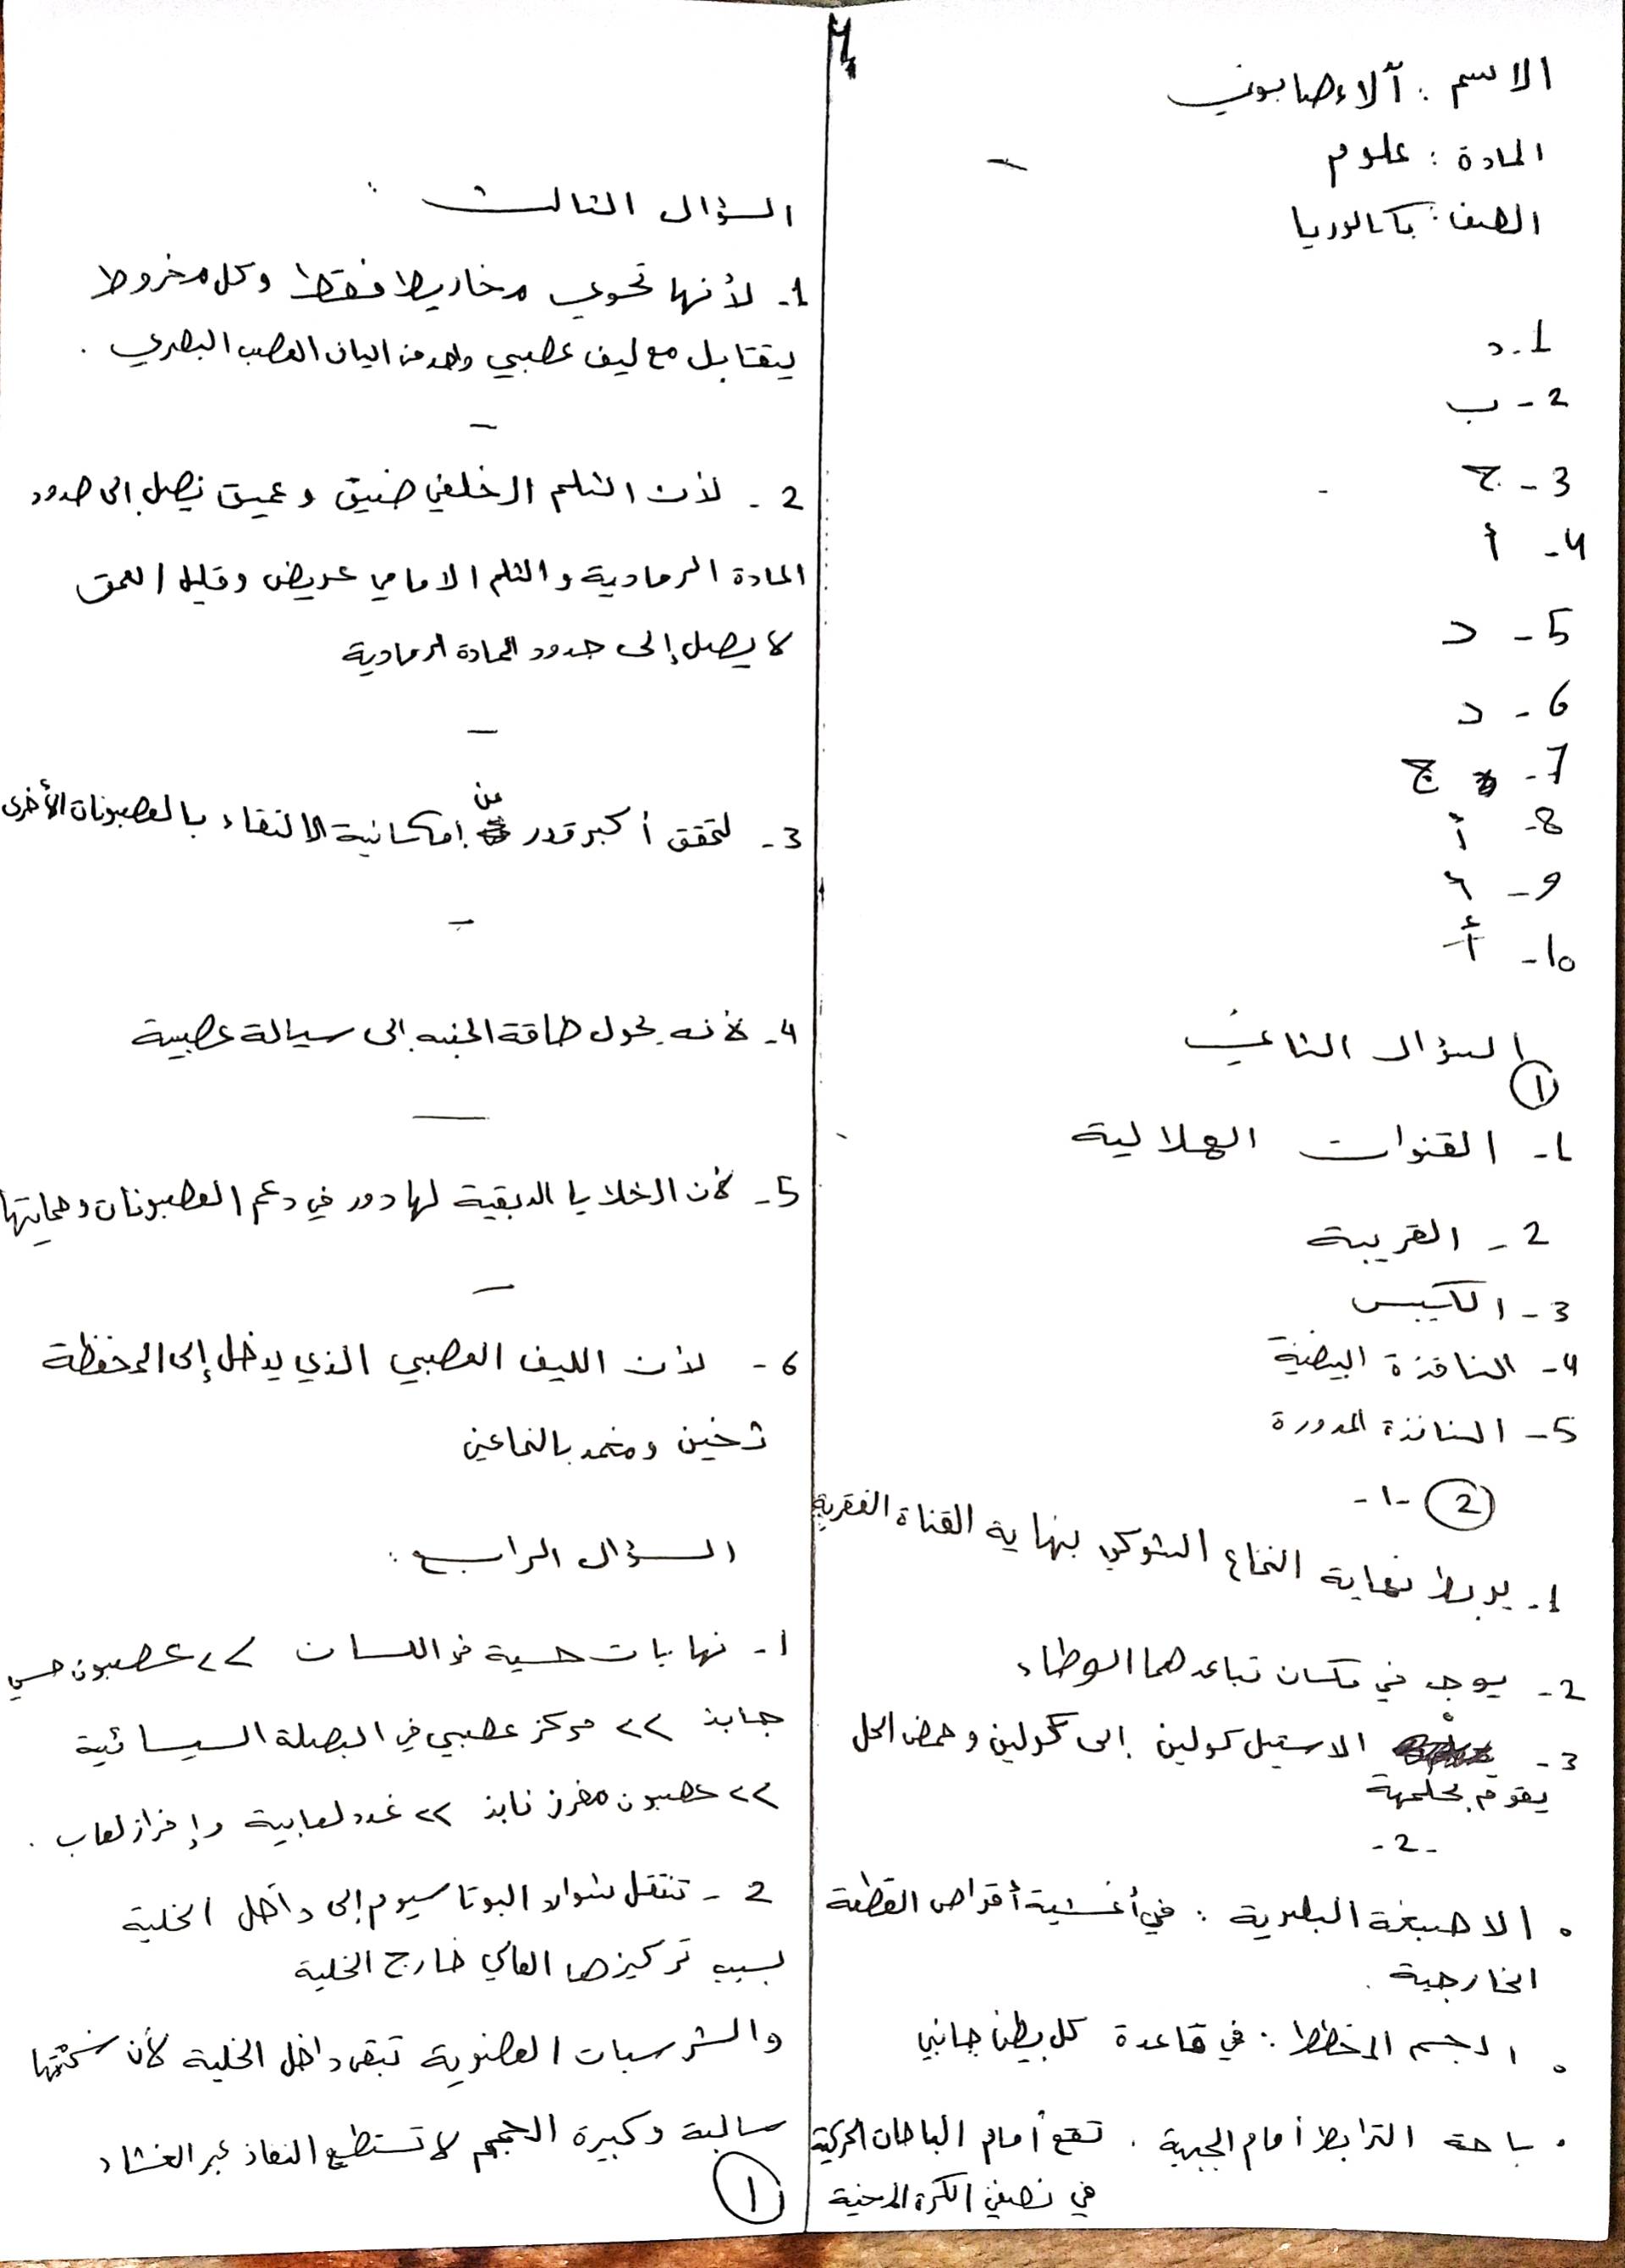 الاسم : آلاء صابوني
المادة : علوم
الصف : بكالوريا
1. د
2 - ب
3 - ج
4 - أ
5 - د
6 - د
7 - ج
8 - أ
9 -
10 - أ
السؤال الثاني
①
1 - القنوات الهلالية
2 - القريبة
3 - الكييس
4 - النافذة البيضية
5 - النافذة المدورة
② -1-
1 - يربط نهاية النخاع الشوكي بنهاية القناة الفقرية
2 - يوجد في مكان تباعدهما الوطاء
3 - الاستيل كولين إلى كولين وحمض الخل
يقوم بحلمهة
-2-
• الاصبغة البصرية : في أغشية أقراص القطعة
الخارجية .
• الجسم المخطط : في قاعدة كل بطين جانبي
• باحة الترابط أمام الجبهية . تقع أمام الباحات الحركية
في نصفي الكرة المخية
السؤال الثالث :
1 - لأنها تحوي مخاريط فقط وكل مخروط
يتقابل مع ليف عصبي واحد من الياف العصب البصري .
2 - لأن الثلم الخلفي ضيق وعميق يصل إلى حدود
المادة الرمادية والثلم الامامي عريض وقليل العمق
لا يصل إلى حدود المادة الرمادية
3 - لتحقق أكبر قدر من إمكانية الالتقاء بالعصبونات الأخرى
4 - لأنه يحول طاقة المنبه إلى سيالة عصبية
5 - لأن الخلايا الدبقية لها دور في دعم العصبونات وحمايتها
6 - لأن الليف العصبي الذي يدخل إلى المحفظة
ثخين ومغمد بالنخاعين
السؤال الرابع :
1 - نهايات حسية في اللسان >> عصبون حسي
جابذ >> مركز عصبي في البصلة السيسائية
>> عصبون مفرز نابذ >> غدد لعابية وإفراز لعاب .
2 - تنتقل شوارد البوتاسيوم إلى داخل الخلية
بسبب تركيزها العالي خارج الخلية
والشرسبات العضوية تبقى داخل الخلية لأن شحنتها
سالبة وكبيرة الحجم لا تستطيع النفاذ عبر الغشاء
①